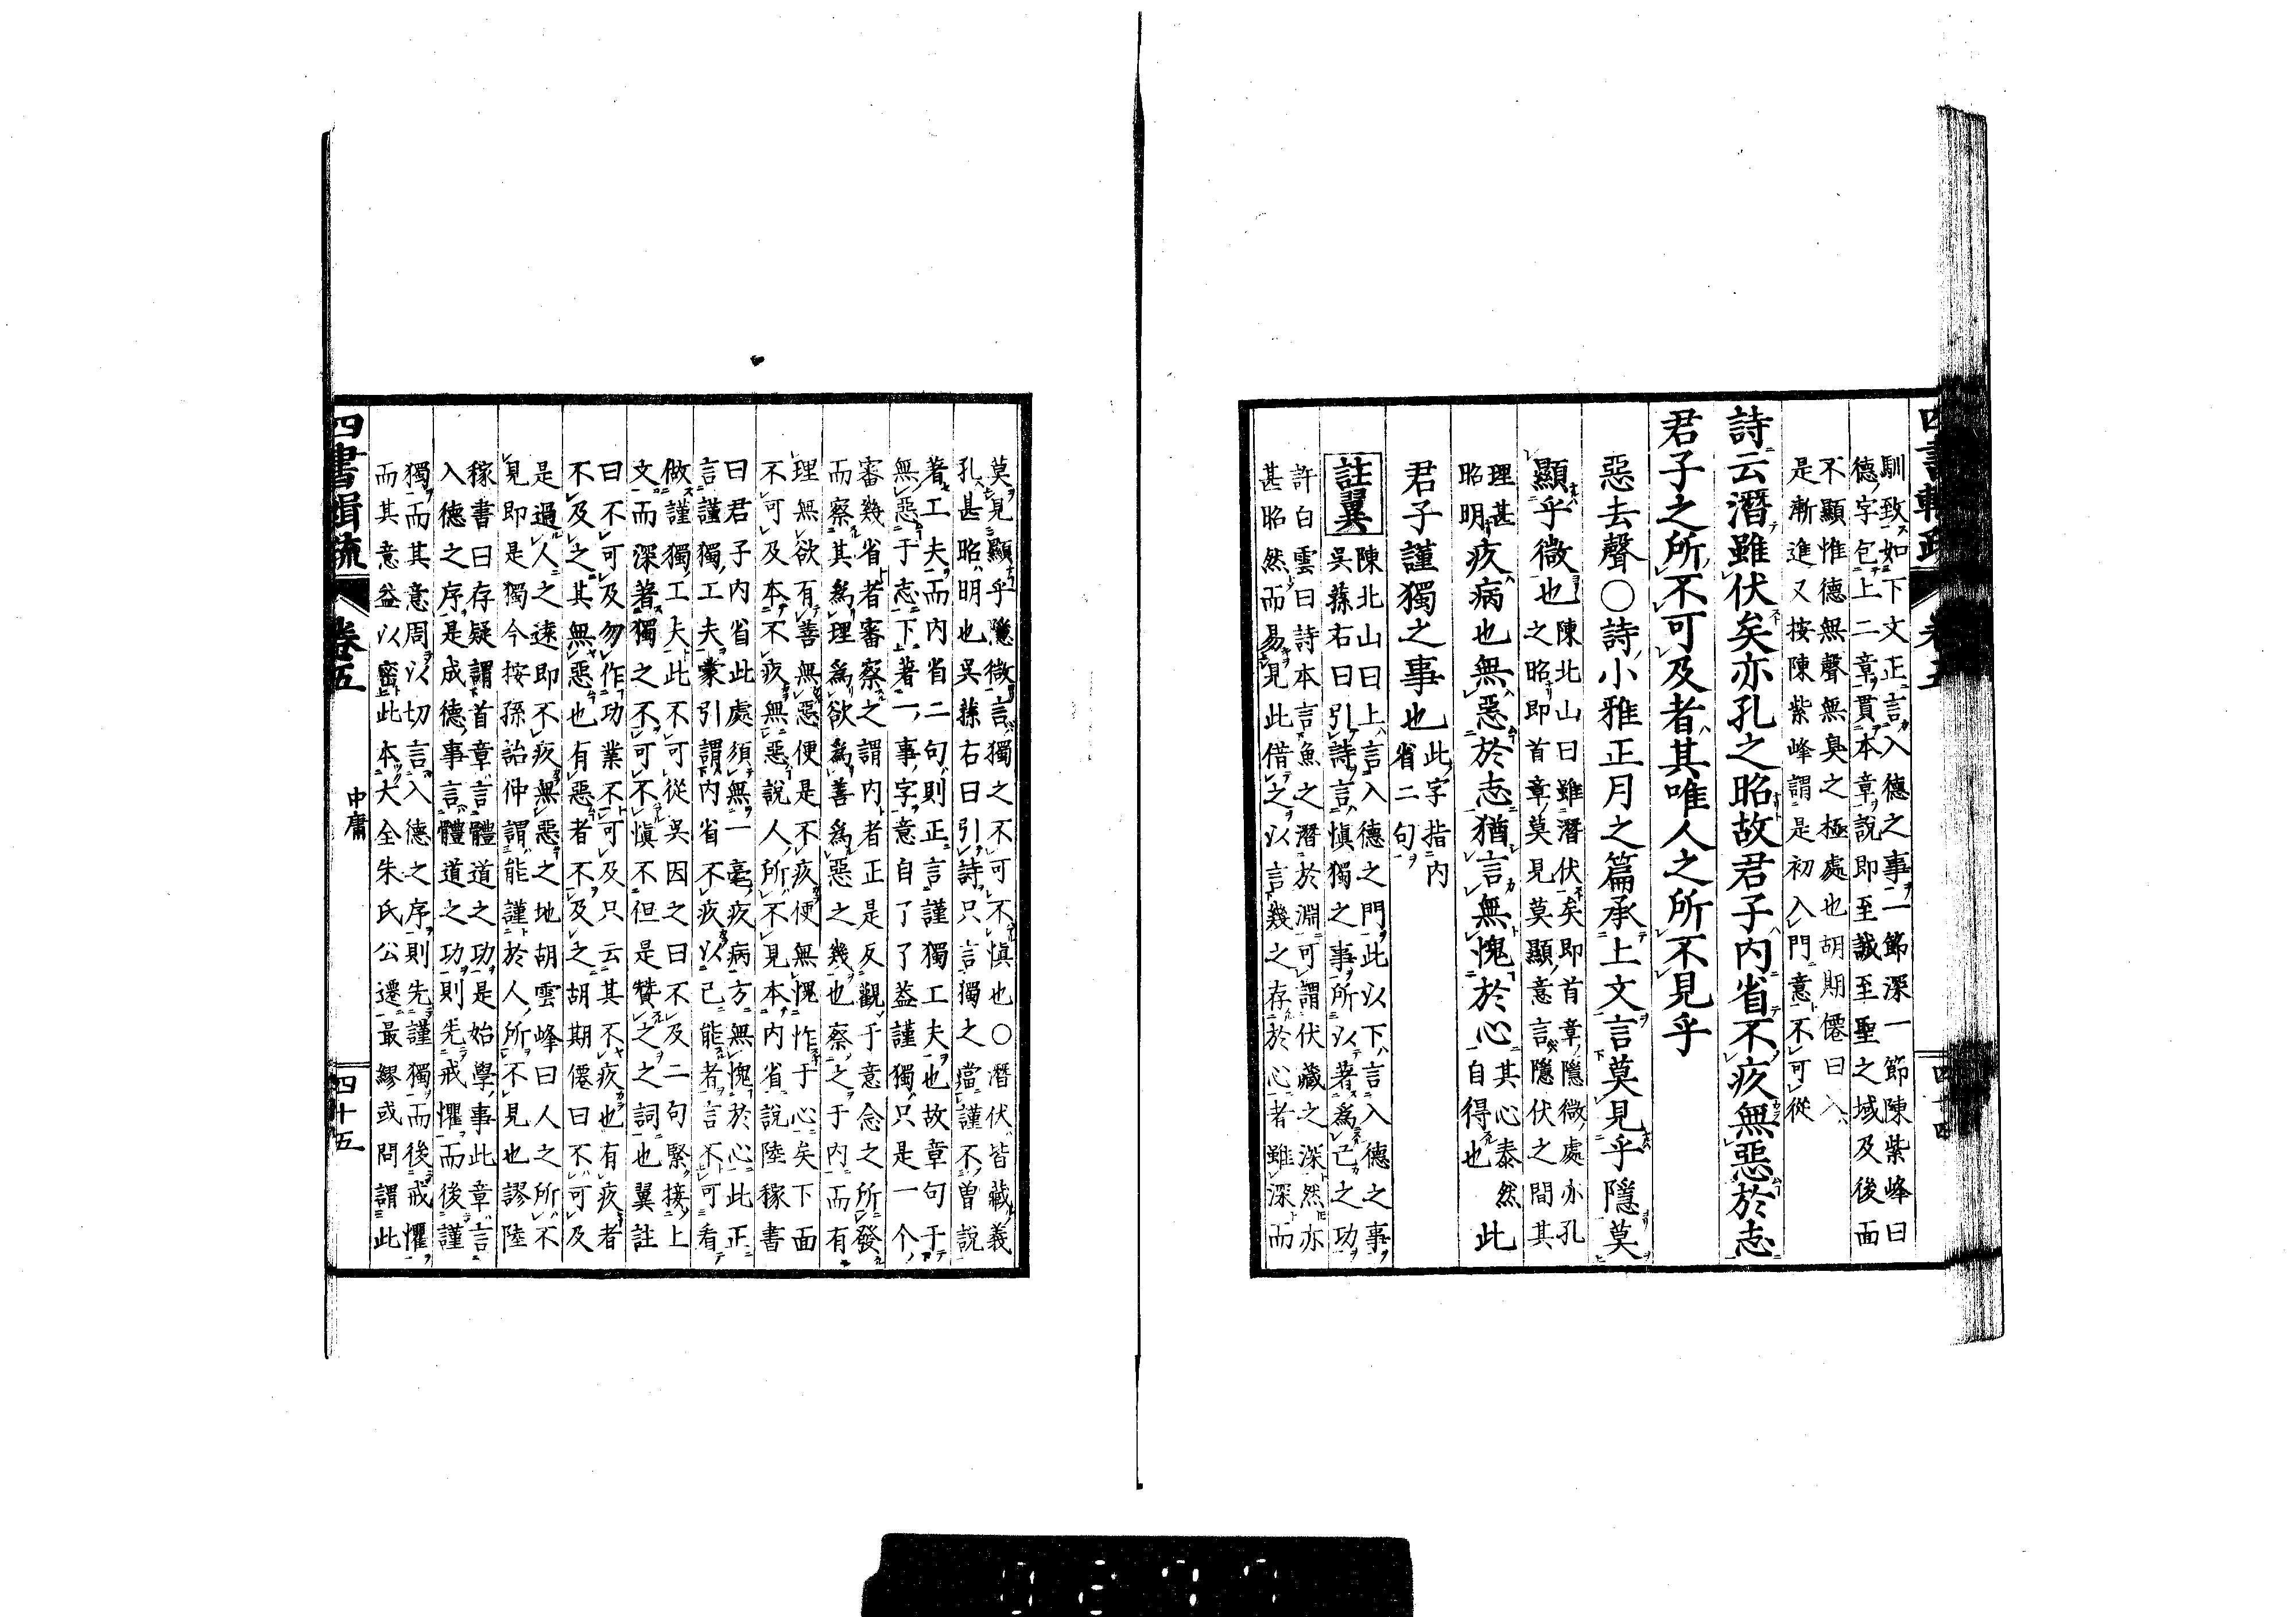 四書輯疏 卷五 四十四
馴致如下文正言入德之事二節深一節陳紫峰曰
德字包上二章貫本章說即至誠至聖之域及後面
不顯惟德無聲無臭之極處也胡期僊曰入
是漸進又按陳紫峰謂是初入門意不可從
詩云潛雖伏矣亦孔之昭故君子內省不疚無惡於志
君子之所不可及者其唯人之所不見乎
惡去聲○詩小雅正月之篇承上文言莫見乎隱莫
顯乎微也陳北山曰雖潛伏矣即首章隱微處亦孔
之昭即首章莫見莫顯意言隱伏之間其
理甚
昭明疚病也無惡於志猶言無愧於心其心泰然
自得也此
君子謹獨之事也此字指內
省二句
註翼陳北山曰上言入德之門此以下言入德之事
吳蓀右曰引詩言慎獨之事所以著為己之功
許白雲曰詩本言魚之潛於淵可謂伏藏之深然亦
甚昭然而易見此借之以言幾之存於心者雖深而
莫見顯乎隱微言獨之不可不慎也○潛伏皆藏義
孔甚昭明也吳蓀右曰引詩只言獨之當謹不曾說
著工夫而內省二句則正言謹獨工夫也故章句于
無惡于志下著一事字意自了了益謹獨只是一个
審幾省者審察之謂內者正是反觀于意念之所發
而察其為理為欲為善為惡之幾也察之于內而有
理無欲有善無惡便是不疚便無愧怍于心矣下面
不可及本不疚無惡說人所不見本內省說陸稼書
曰君子內省此處須無一毫疚病方無愧於心此正
言謹獨工夫蒙引謂內省不疚以己能者言不可看
做謹獨工夫此不可從吳因之曰不及二句緊接上
文而深著獨之不可不慎不但是贊之之詞也翼註
曰不可及勿作功業不可及只云其不疚也有疚者
不及之其無惡也有惡者不及之胡期僊曰不可及
是過人之遠即不疚無惡之地胡雲峰曰人之所不
見即是獨今按孫詒仲謂能謹於人所不見也謬陸
稼書曰存疑謂首章言體道之功是始學事此章言
入德之序是成德事言體道之功則先戒懼而後謹
獨而其意周以切言入德之序則先謹獨而後戒懼
而其意益以密此本大全朱氏公遷最繆或問謂此
四書輯疏 卷五 中庸 四十五